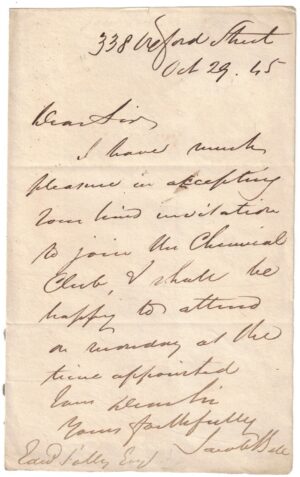 338 Oxford Street
Oct 29. 45
Dear Sir,
I have much
pleasure in accepting
your kind invitation
to join the Chemical
Club, & I shall be
happy to attend
on monday at the
time appointed
I am Dear Sir
Yours faithfully
Jacob Bell
Edwd Solly Esqr